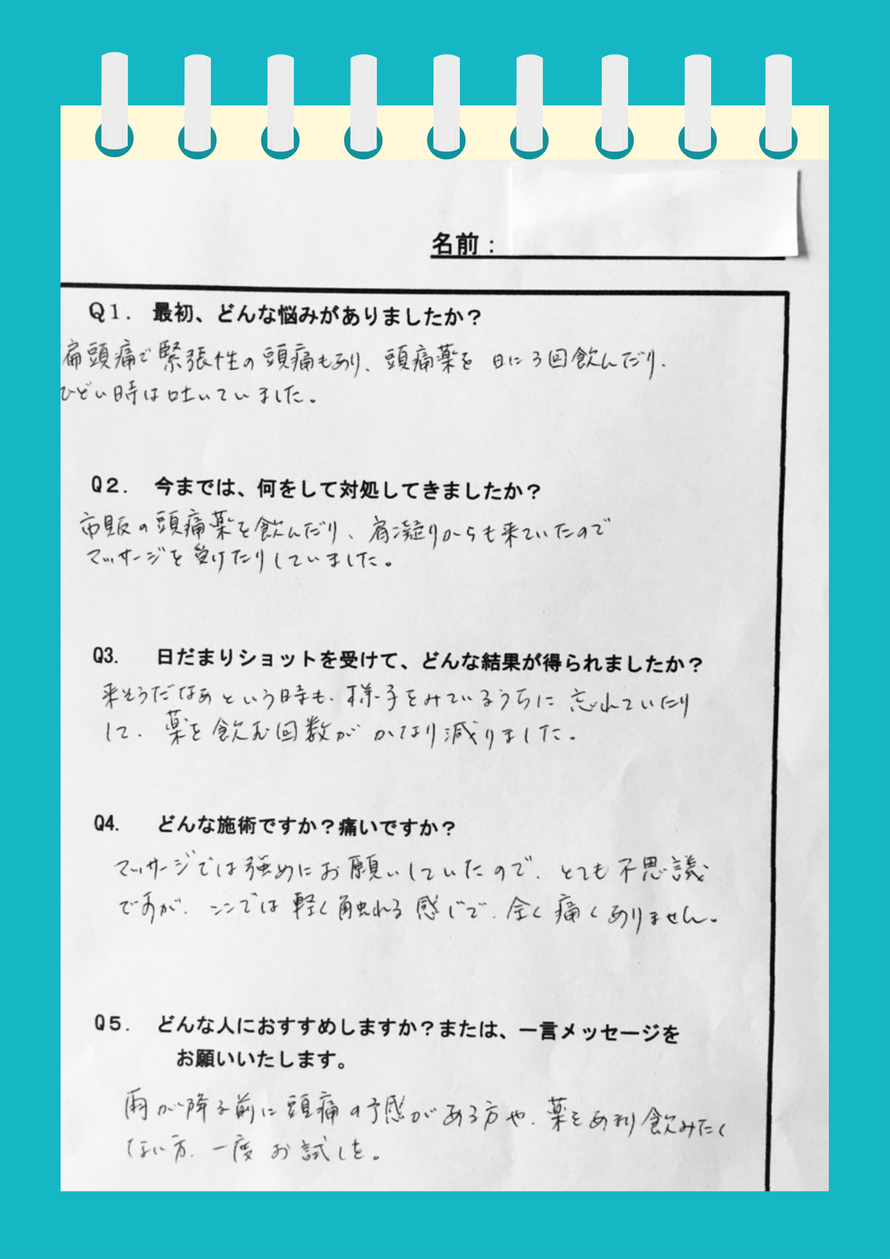 名前：
Q1. 最初、どんな悩みがありましたか？
偏頭痛で緊張性の頭痛もあり、頭痛薬を 日に3回飲んだり、
ひどい時は吐いていました。
Q2. 今までは、何をして対処してきましたか？
市販の頭痛薬を飲んだり、肩凝りからも来ていたので
マッサージを受けたりしていました。
Q3. 日だまりショットを受けて、どんな結果が得られましたか？
来そうだなぁという時も、様子をみているうちに忘れていたり
して、薬を飲む回数がかなり減りました。
Q4. どんな施術ですか？痛いですか？
マッサージでは強めにお願いしていたので、とても不思議
ですが、ここでは軽く触れる感じで、全く痛くありません。
Q5. どんな人におすすめしますか？または、一言メッセージを
お願いいたします。
雨が降る前に頭痛の予感がある方や、薬をあまり飲みたく
ない方、一度お試しを。